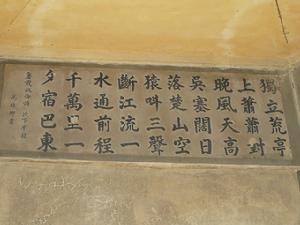 獨立荒亭
上蕭蕭對
晚風天高
吳塞闊日
落楚山空
猿叫三聲
斷江流一
水通前程
千萬里一
夕宿巴東